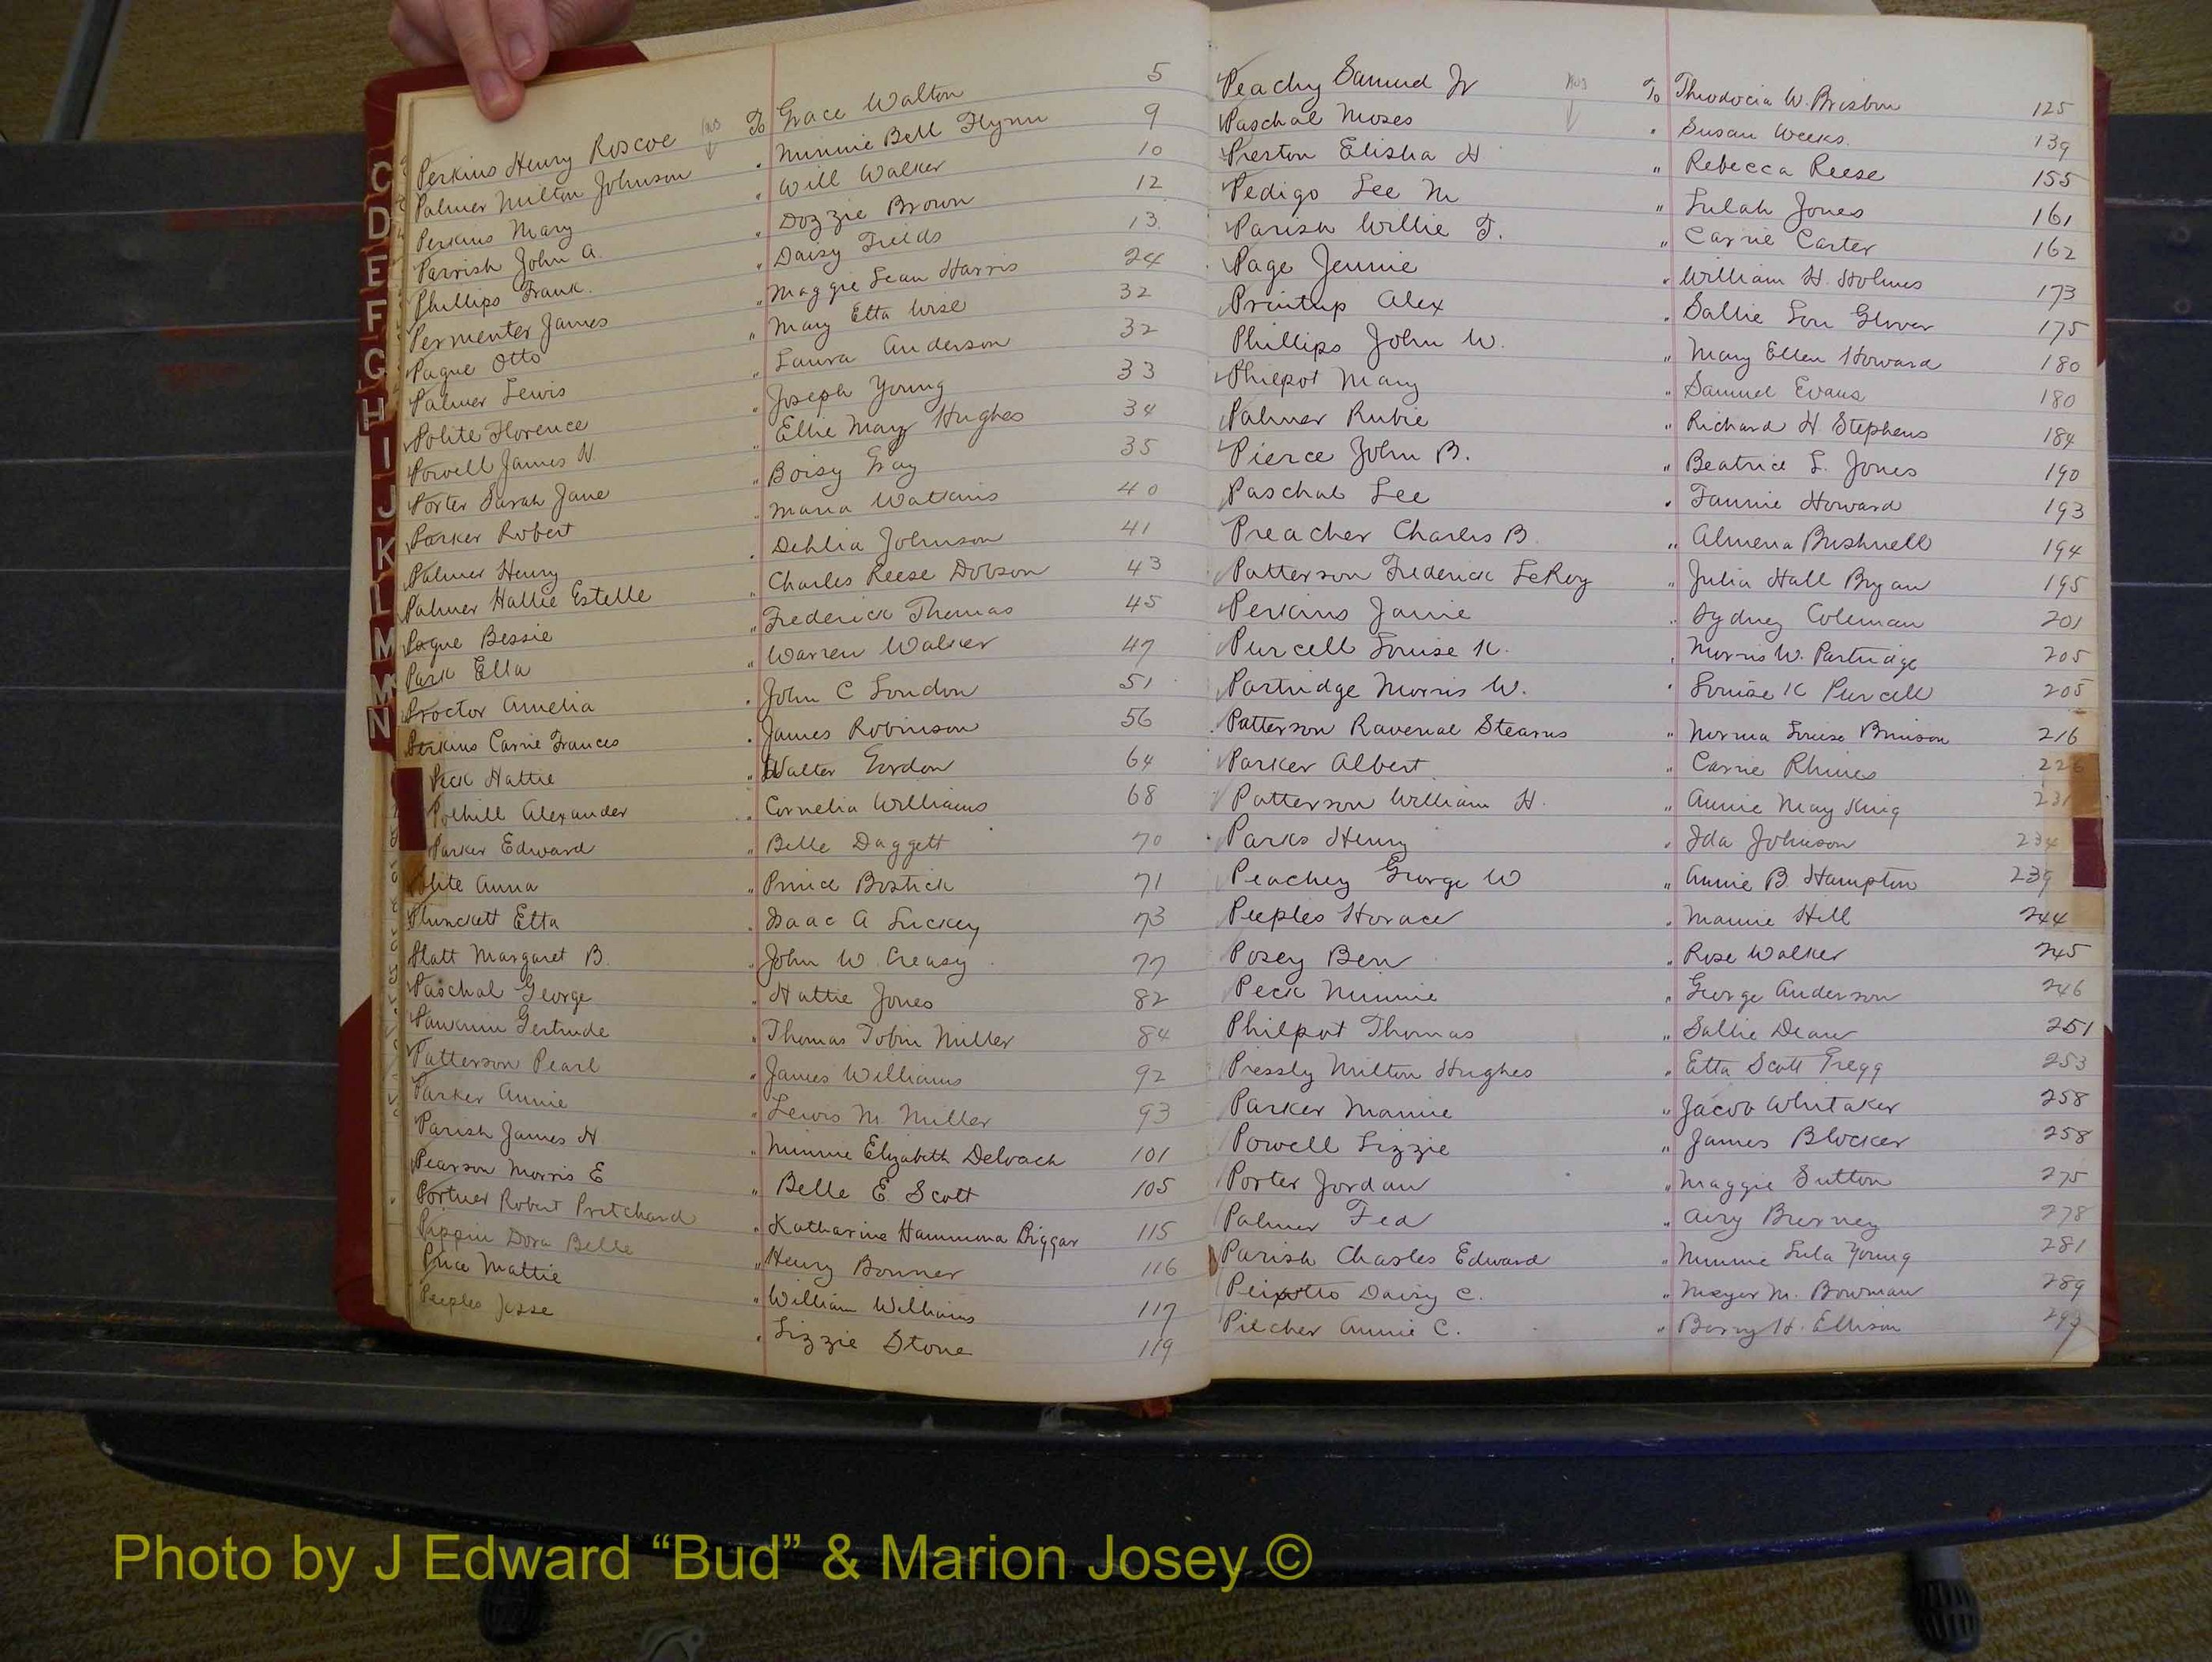 Perkins Henry Roscoe To Grace Walton 5
Palmer Milton Johnson " Minnie Bell Flynn 9
Perkins Mary " Will Walker 10
Parrish John A. " Dozzie Brown 12
Phillips Frank. " Daisy Fields 13
Permenter James " Maggie Lean Harris 24
Pague Otto " Mary Etta Wise 32
Palmer Lewis " Laura Anderson 32
Polite Florence " Joseph Young 33
Powell James N " Ellie May Hughes 34
Porter Sarah Jane " Boisy Gray 35
Parker Robert " Maria Watkins 40
Palmer Henry " Dehlia Johnson 41
Palmer Hallie Estelle " Charles Reese Dobson 43
Pogue Bessie " Frederick Thomas 45
Park Ella " Warren Walker 47
Proctor Amelia " John C London 51
Perkins Carrie Frances " James Robinson 56
Peck Hattie " Walter Gordon 64
Polhill Alexander " Cornelia Williams 68
Parker Edward " Belle Daggett 70
Polite Anna " Prince Bostick 71
Plunckett Etta " Isaac A Luckey 73
Platt Margaret B. " John W. Creasy 77
Paschal George " Hattie Jones 82
Gertrude " Thomas Tobin Miller 84
Patterson Pearl " James Williams 92
Parker Annie " Lewis M. Miller 93
Parish James H " Minnie Elizabeth Deloach 101
Pearson Morris E " Belle E. Scott 105
Portner Robert Pritchard " Katharine Hammond Biggar 115
Pippin Dora Belle " Henry Bonner 116
Price Mattie " William Williams 117
Peeples Jesse " Lizzie Stone 119
Peachy Samuel Jr To Theodocia W. Brisbon 125
Paschal Moses " Susan Weeks. 139
Preston Elisha H " Rebecca Reese 155
Pedigo Lee M " Lulah Jones 161
Parish Willie F. " Carrie Carter 162
Page Jennie " William H. Holmes 173
Printup Alex " Sallie Lou Glover 175
Phillips John W. " Mary Ellen Howard 180
Philpot Mary " Samuel Evans 180
Palmer Rubie " Richard H. Stephens 184
Pierce John B. " Beatrice L. Jones 190
Paschal Lee " Fannie Howard 193
Preacher Charles B. " Almena Bushnell 194
Patterson Frederick LeRoy " Julia Hall Bryan 195
Perkins Janie " Sydney Coleman 201
Purcell Louise K. " Morris W. Partridge 205
Partridge Morris W. " Louise K Purcell 205
Patterson Ravenal Stearns " Norma Louise Brinson 216
Parker Albert " Carrie Rhines 226
Patterson William H. " Annie May King 231
Parks Henry " Ida Johnson 234
Peachey George W " Annie B. Hampton 239
Peeples Horace " Mamie Hill 244
Posey Ben " Rose Walker 245
Peck Minnie " George Anderson 246
Philpot Thomas " Sallie Dean 251
Pressly Milton Hughes " Etta Scott Tregg 253
Parker Mamie " Jacob Whitaker 258
Powell Lizzie " James Blocker 258
Porter Jordan " Maggie Sutton 275
Palmer Fed " Airy Burney 278
Parish Charles Edward " Minnie Lula Young 281
Peixotto Daisy C. " Meyer M. Bowman 289
Pilcher Annie C. " Barry H. Ellison
C
D
E
F
G
H
I
J
K
L
M
Mc
N
Photo by J Edward “Bud” & Marion Josey ©